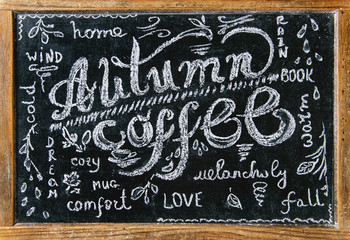 home
RAIN
WIND
Autumn
BOOK
cold
coffee
warm
DREAM
cozy
melancholy
MUG
comfort
LOVE
fall